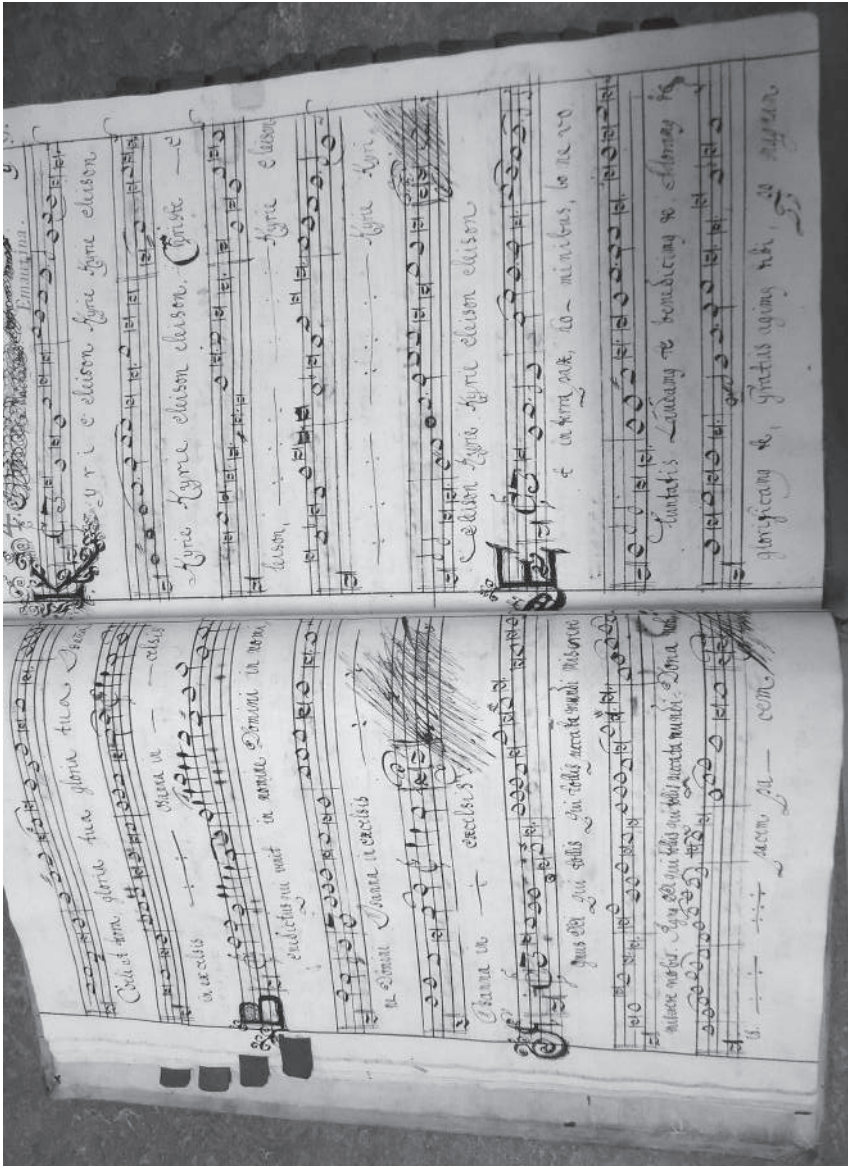 Cœli et terra gloria tua gloria tua Osana
in excelsis ·/· osana in — celsis
Benedictus qui venit in nomine Domini in nomi
ne Domini Osanna in excelsis ·/·
Osanna in ·/· excelsis
Agnus dei qui tollis qui tollis peccata mundi miserere
miserere nobis. Agnus dei qui tollis qui tollis peccata mundi. Dona
is. ·/· ·/· pacem pa — cem.
Kyrie eleison Kyrie Kyrie eleison
Kyrie Kyrie eleison eleison. Christe — e
leison, ·/· ·/· Kyrie eleison
·/· ·/· Kyrie
Eleison Kyrie Kyrie eleison eleison
Et in terra pax, ho– minibus, bo ne vo
luntatis Laudamus te benedicimus te Adoramus te
glorificamus te, gratias agimus tibi,